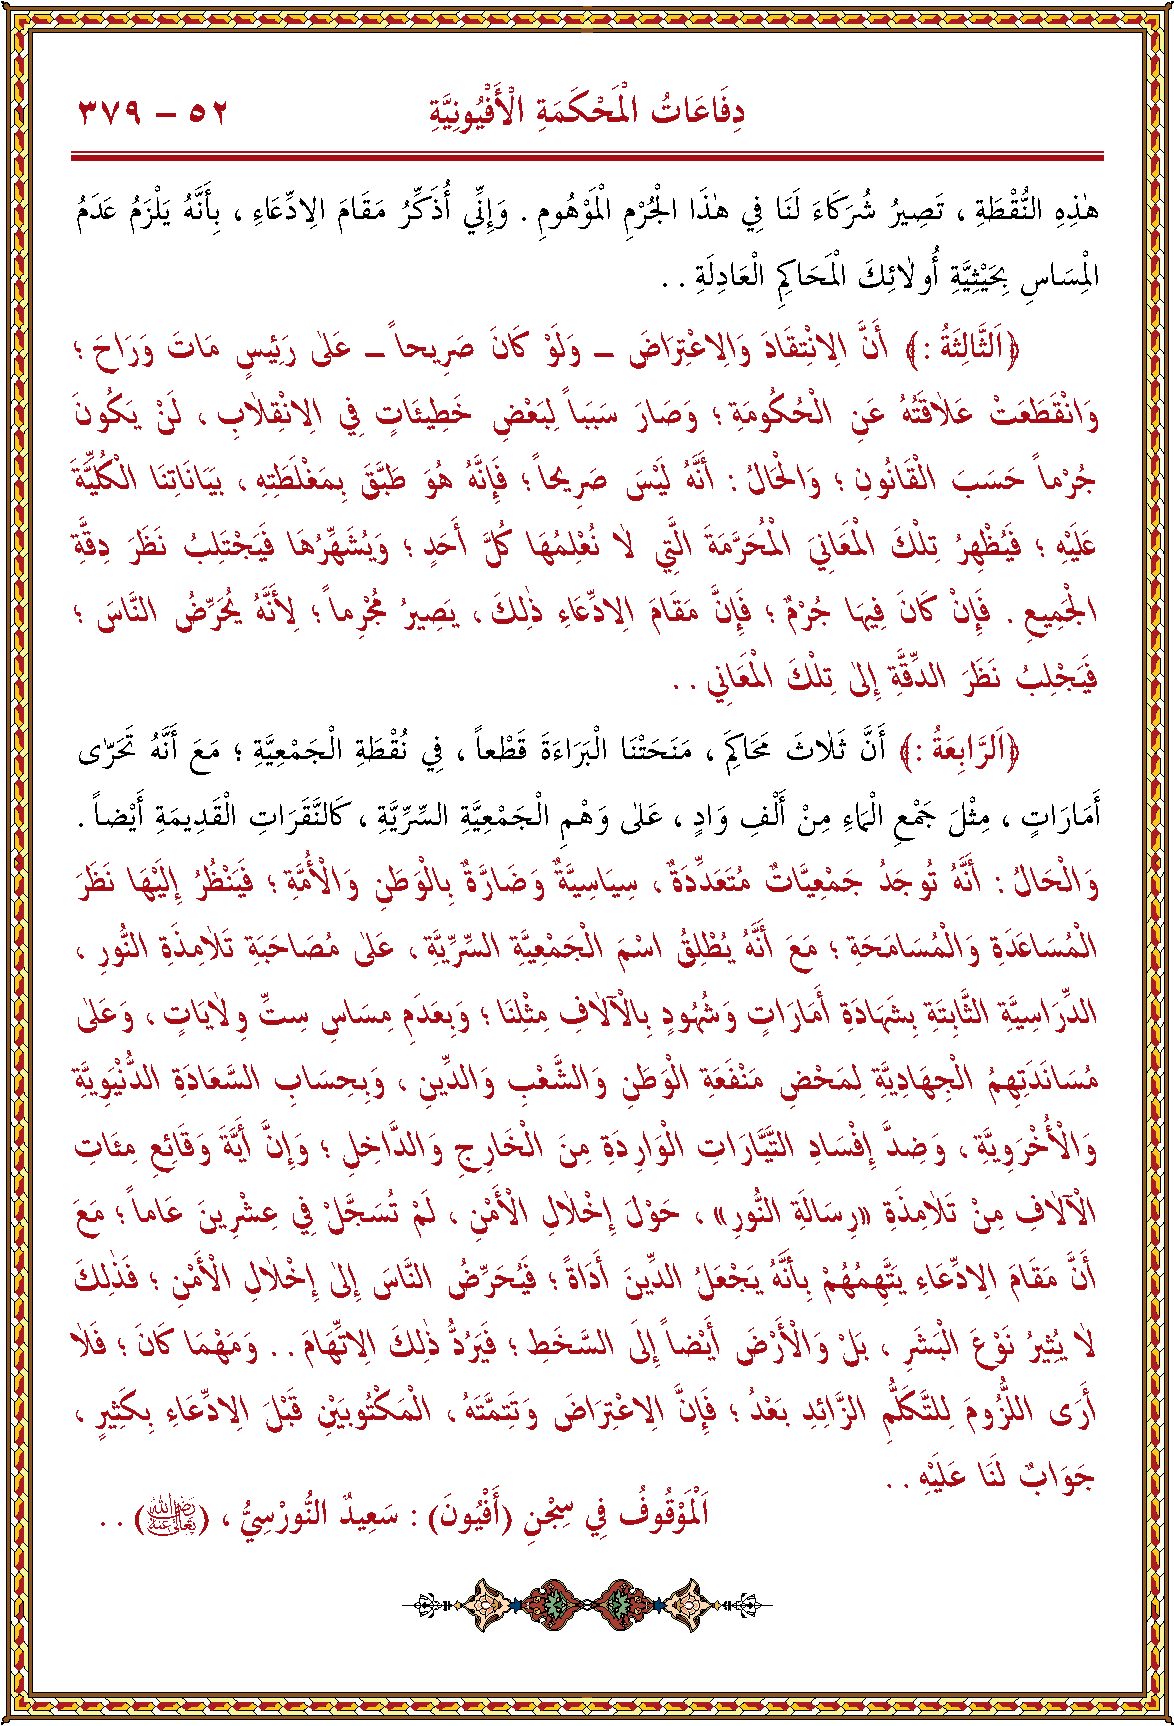 دِفَاعَاتُ الْمَحْكَمَةِ الْأَفْيُونِيَّةِ ٥٢ – ٣٧٩
هٰذِهِ النُّقْطَةِ ، تَصِيرُ شُرَكَاءَ لَنَا فِي هٰذَا الْجُرْمِ الْمَوْهُومِ . وَإِنِّي أُذَكِّرُ مَقَامَ الِادِّعَاءِ ، بِأَنَّهُ يَلْزَمُ عَدَمُ
الْمِسَاسِ بِحَيْثِيَّةِ أُولَائِكَ الْمَحَاكِمِ الْعَادِلَةِ . .
﴿اَلثَّالِثَةُ :﴾ أَنَّ الِانْتِقَادَ وَالِاعْتِرَاضَ – وَلَوْ كَانَ صَرِيحاً – عَلٰى رَئِيسٍ مَاتَ وَرَاحَ ؛
وَانْقَطَعَتْ عَلَاقَتُهُ عَنِ الْحُكُومَةِ ؛ وَصَارَ سَبَباً لِبَعْضِ خَطِيئَاتٍ فِي الِانْقِلَابِ ، لَنْ يَكُونَ
جُرْماً حَسَبَ الْقَانُونِ ؛ وَالْحَالُ : أَنَّهُ لَيْسَ صَرِيحاً ؛ فَإِنَّهُ هُوَ طَبَّقَ بِمَغْلَطَتِهِ ، بَيَانَاتِنَا الْكُلِّيَّةَ
عَلَيْهِ ؛ فَيُظْهِرُ تِلْكَ الْمَعَانِيَ الْمُحَرَّمَةَ الَّتِي لَا نُعْلِمُهَا كُلَّ أَحَدٍ ؛ وَيُشَهِّرُهَا فَيَجْتَلِبُ نَظَرَ دِقَّةِ
الْجَمِيعِ . فَإِنْ كَانَ فِيهَا جُرْمٌ ؛ فَإِنَّ مَقَامَ الِادِّعَاءِ ذٰلِكَ ، يَصِيرُ مُجْرِماً ؛ لِأَنَّهُ يُحَرِّضُ النَّاسَ ؛
فَيَجْلِبُ نَظَرَ الدِّقَّةِ إِلٰى تِلْكَ الْمَعَانِي . .
﴿اَلرَّابِعَةُ :﴾ أَنَّ ثَلَاثَ مَحَاكِمَ ، مَنَحَتْنَا الْبَرَاءَةَ قَطْعاً ، فِي نُقْطَةِ الْجَمْعِيَّةِ ؛ مَعَ أَنَّهُ تَحَرّٰى
أَمَارَاتٍ ، مِثْلَ جَمْعِ الْمَاءِ مِنْ أَلْفِ وَادٍ ، عَلٰى وَهْمِ الْجَمْعِيَّةِ السِّرِّيَّةِ ، كَالنَّقَرَاتِ الْقَدِيمَةِ أَيْضاً .
وَالْحَالُ : أَنَّهُ تُوجَدُ جَمْعِيَّاتٌ مُتَعَدِّدَةٌ ، سِيَاسِيَّةٌ وَضَارَّةٌ بِالْوَطَنِ وَالْأُمَّةِ ؛ فَيَنْظُرُ إِلَيْهَا نَظَرَ
الْمُسَاعَدَةِ وَالْمُسَامَحَةِ ؛ مَعَ أَنَّهُ يُطْلِقُ اسْمَ الْجَمْعِيَّةِ السِّرِّيَّةِ ، عَلٰى مُصَاحَبَةِ تَلَامِذَةِ النُّورِ ،
الدِّرَاسِيَّةِ الثَّابِتَةِ بِشَهَادَةِ أَمَارَاتٍ وَشُهُودٍ بِالْآلَافِ مِثْلِنَا ؛ وَبِعَدَمِ مِسَاسِ سِتِّ وِلَايَاتٍ ، وَعَلٰى
مُسَانَدَتِهِمُ الْجِهَادِيَّةِ لِمَحْضِ مَنْفَعَةِ الْوَطَنِ وَالشَّعْبِ وَالدِّينِ ، وَبِحِسَابِ السَّعَادَةِ الدُّنْيَوِيَّةِ
وَالْأُخْرَوِيَّةِ ، وَضِدَّ إِفْسَادِ التَّيَّارَاتِ الْوَارِدَةِ مِنَ الْخَارِجِ وَالدَّاخِلِ ؛ وَإِنَّ أَيَّةَ وَقَائِعِ مِئَاتِ
الْآلَافِ مِنْ تَلَامِذَةِ «رِسَالَةِ النُّورِ» ، حَوْلَ إِخْلَالِ الْأَمْنِ ، لَمْ تُسَجَّلْ فِي عِشْرِينَ عَاماً ؛ مَعَ
أَنَّ مَقَامَ الِادِّعَاءِ يَتَّهِمُهُمْ بِأَنَّهُ يَجْعَلُ الدِّينَ أَدَاةً ؛ فَيُحَرِّضُ النَّاسَ إِلٰى إِخْلَالِ الْأَمْنِ ؛ فَذٰلِكَ
لَا يُثِيرُ نَوْعَ الْبَشَرِ ، بَلْ وَالْأَرْضَ أَيْضاً إِلَى السَّخَطِ ؛ فَيَرُدُّ ذٰلِكَ الِاتِّهَامَ . . وَمَهْمَا كَانَ ؛ فَلَا
أَرَى اللُّزُومَ لِلتَّكَلُّمِ الزَّائِدِ بَعْدُ ؛ فَإِنَّ الِاعْتِرَاضَ وَتَتِمَّتَهُ ، الْمَكْتُوبَيْنِ قَبْلَ الِادِّعَاءِ بِكَثِيرٍ ،
جَوَابٌ لَنَا عَلَيْهِ . .
اَلْمَوْقُوفُ فِي سِجْنِ (أَفْيُونَ) : سَعِيدٌ النُّورْسِيُّ ، (رضي الله تعالى عنه) . .